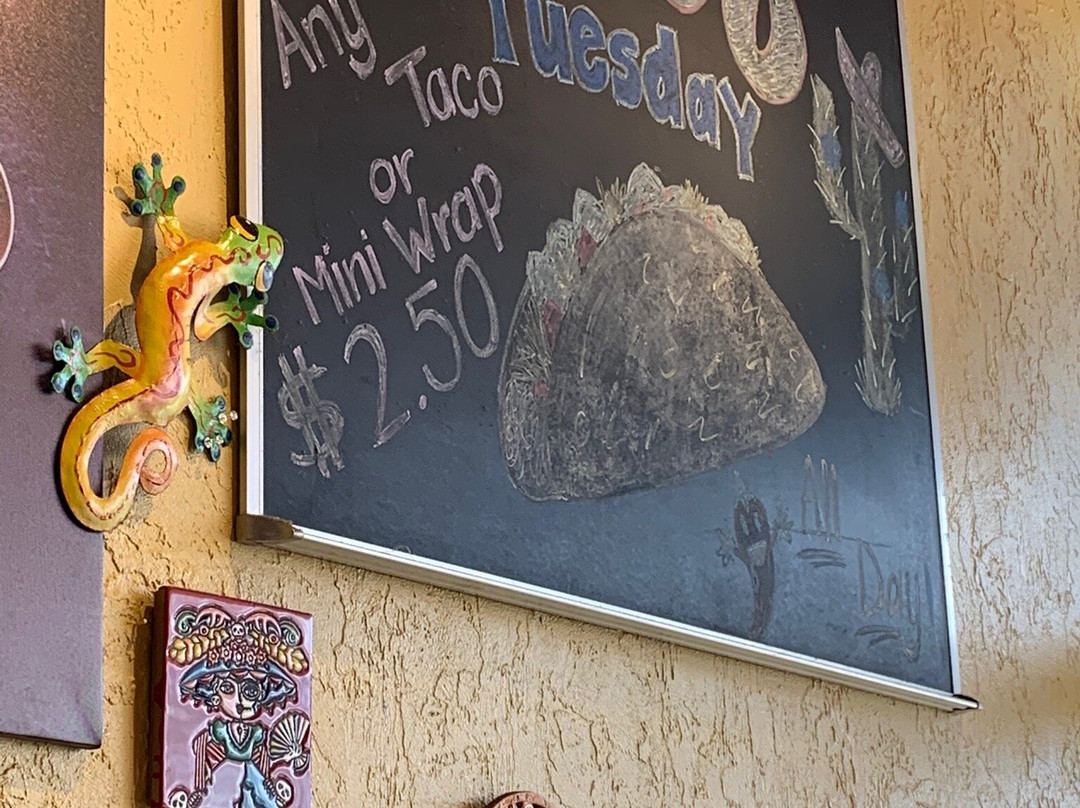 Any
Taco
Tuesday
or
Mini Wrap
$2.50
All
Day!